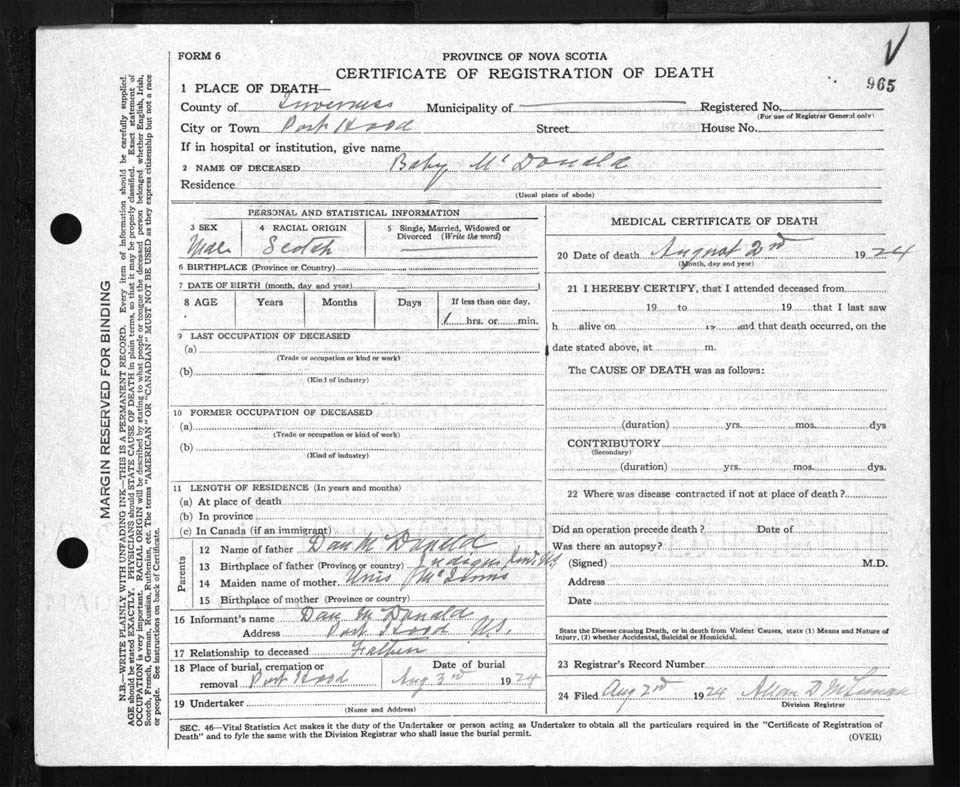 FORM 6
PROVINCE OF NOVA SCOTIA
CERTIFICATE OF REGISTRATION OF DEATH
965
1 PLACE OF DEATH—
County of Inverness Municipality of Registered No.
(For use of Registrar General only)
City or Town Port Hood Street House No.
If in hospital or institution, give name
2 NAME OF DECEASED Baby McDonald
Residence
(Usual place of abode)
PERSONAL AND STATISTICAL INFORMATION
3 SEX 4 RACIAL ORIGIN 5 Single, Married, Widowed or Divorced (Write the word)
Male Scotch
6 BIRTHPLACE (Province or Country)
7 DATE OF BIRTH (month, day and year)
8 AGE Years Months Days If less than one day,
1 hrs. or min.
9 LAST OCCUPATION OF DECEASED
(a)
(Trade or occupation or kind or work)
(b)
(Kind of industry)
10 FORMER OCCUPATION OF DECEASED
(a)
(Trade or occupation or kind of work)
(b)
(Kind of industry)
11 LENGTH OF RESIDENCE (In years and months)
(a) At place of death
(b) In province
(c) In Canada (if an immigrant)
Parents
12 Name of father Dan McDonald
13 Birthplace of father (Province or country)
14 Maiden name of mother
15 Birthplace of mother (Province or country)
16 Informant's name Dan McDonald
Address Port Hood N.S.
17 Relationship to deceased Father
18 Place of burial, cremation or Date of burial
removal Port Hood Aug 3rd 1924
19 Undertaker
(Name and Address)
MEDICAL CERTIFICATE OF DEATH
20 Date of death August 2nd 1924
(Month, day and year)
21 I HEREBY CERTIFY, that I attended deceased from
19 to 19 that I last saw
h alive on 19 and that death occurred, on the
date stated above, at m.
The CAUSE OF DEATH was as follows:
(duration) yrs. mos. dys
CONTRIBUTORY
(Secondary)
(duration) yrs. mos. dys.
22 Where was disease contracted if not at place of death?
Did an operation precede death? Date of
Was there an autopsy?
(Signed) M.D.
Address
Date
State the Disease causing Death, or in death from Violent Causes, state (1) Means and Nature of
Injury, (2) whether Accidental, Suicidal or Homicidal.
23 Registrar's Record Number
24 Filed Aug 2nd 1924 Allan D
Division Registrar
SEC. 46—Vital Statistics Act makes it the duty of the Undertaker or person acting as Undertaker to obtain all the particulars required in the "Certificate of Registration of
Death" and to fyle the same with the Division Registrar who shall issue the burial permit.
(OVER)
MARGIN RESERVED FOR BINDING
N.B.—WRITE PLAINLY WITH UNFADING INK—THIS IS A PERMANENT RECORD. Every item of information should be carefully supplied.
AGE should be stated EXACTLY. PHYSICIANS should STATE CAUSE OF DEATH in plain terms, so that it may be properly classified. Exact statement of
OCCUPATION is very important. RACIAL ORIGIN will be described by stating to what people or tongue the deceased person belonged whether English, Irish,
Scotch, French, German, Russian, Ruthenian, etc. The terms "AMERICAN" OR "CANADIAN" MUST NOT BE USED as they express citizenship but not a race
or people. See instructions on back of Certificate.